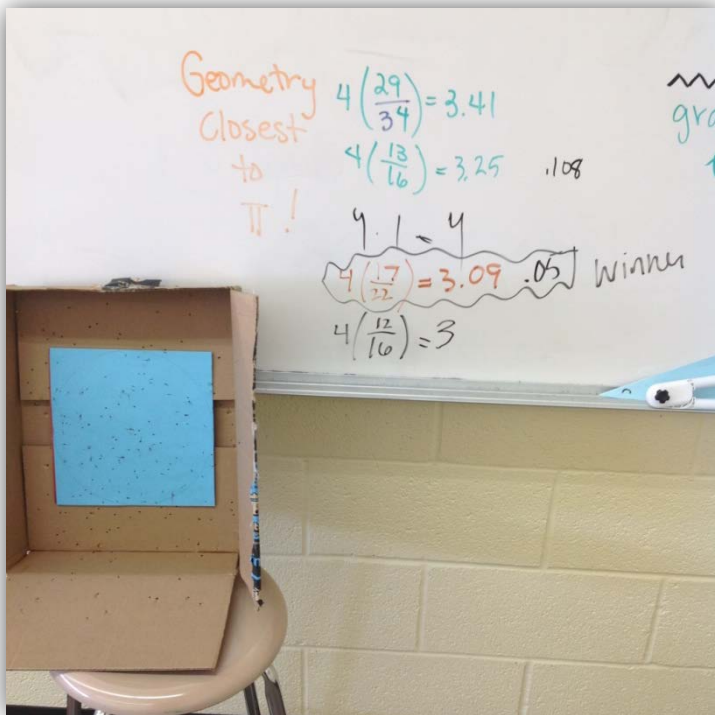 Geometry
Closest
to
π!
4(29/34) = 3.41
4(13/16) = 3.25 .108
4 · 1 = 4
4(17/22) = 3.09 .05 Winner
4(12/16) = 3
gra